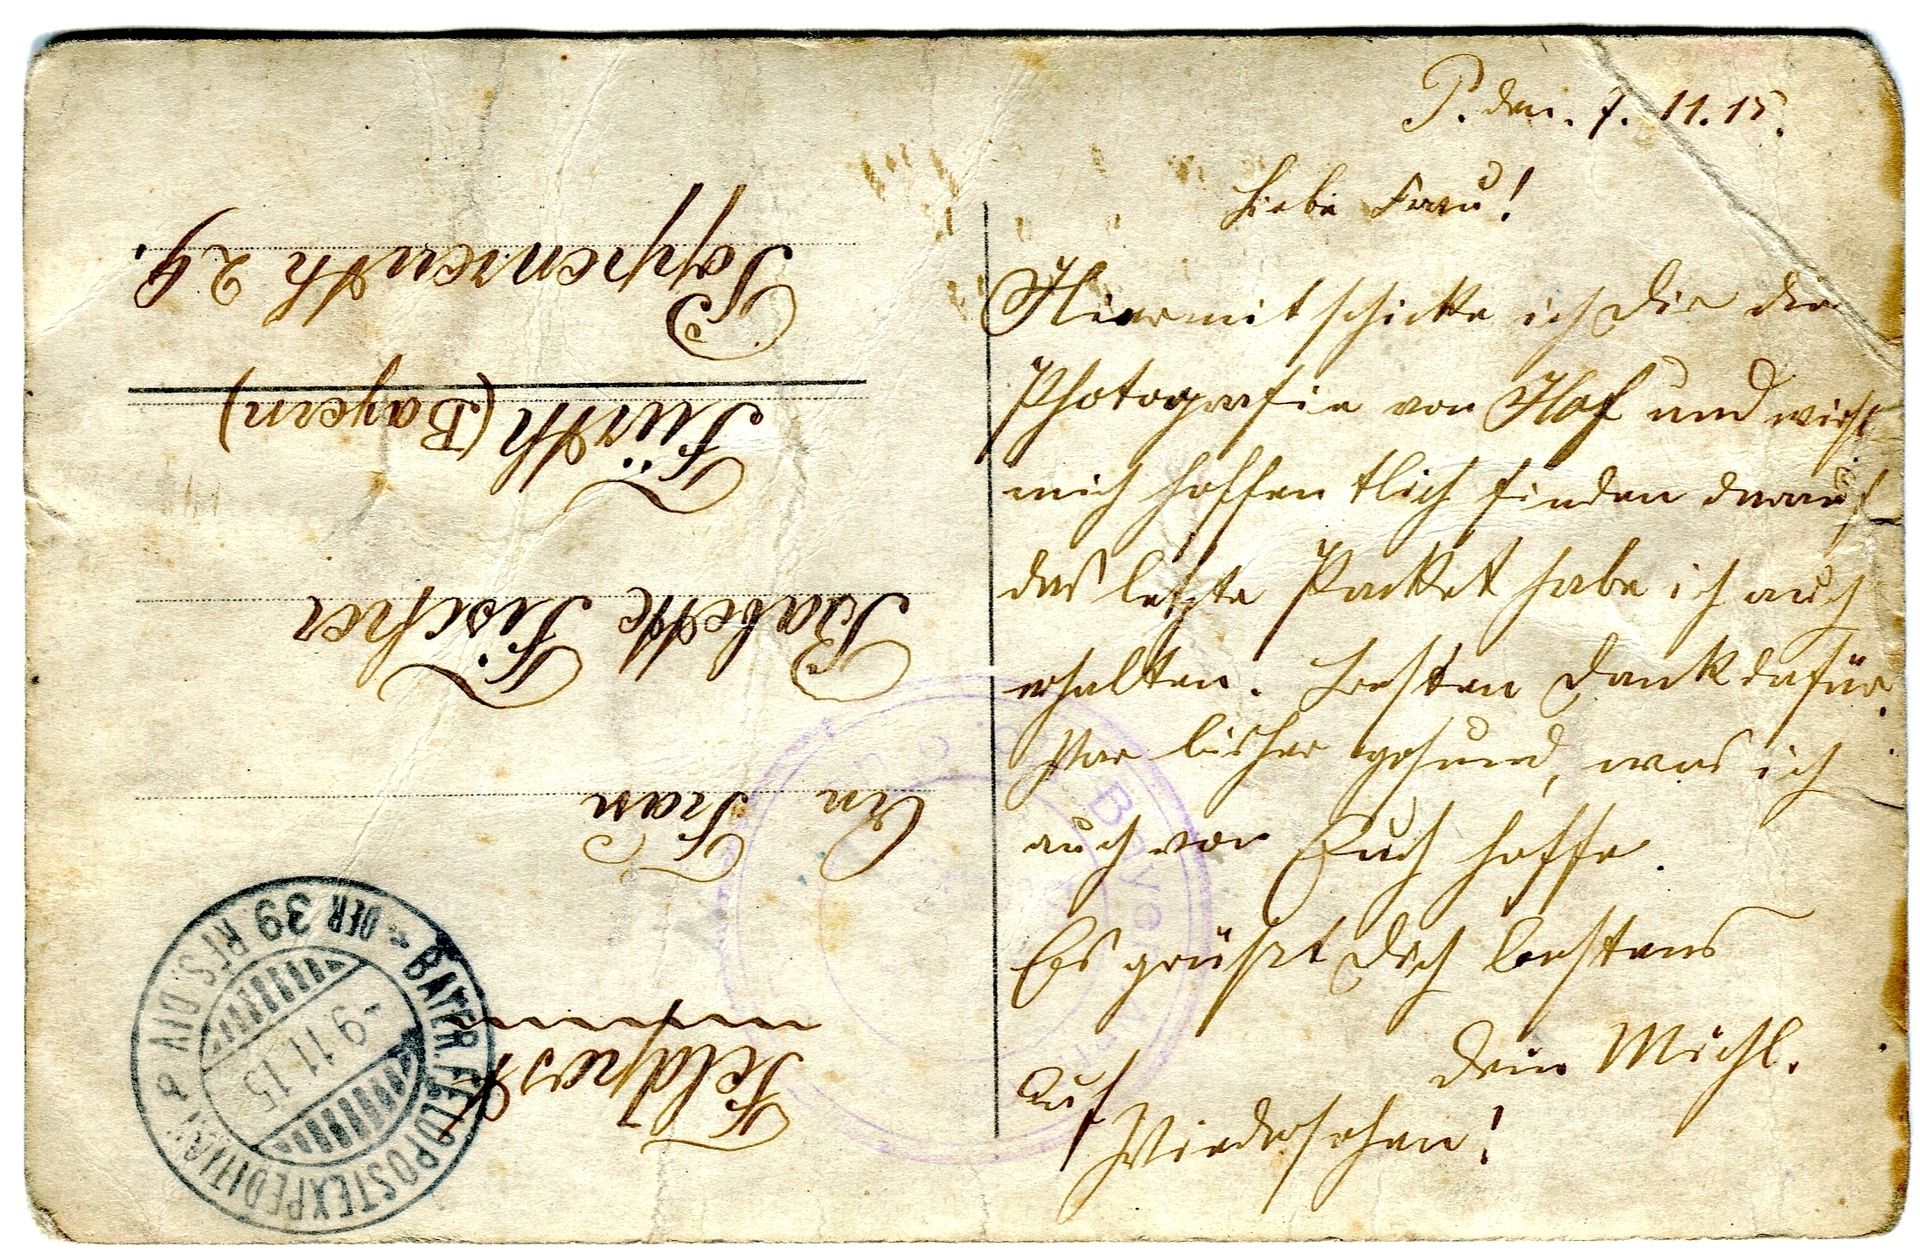 P. den. 7. 11. 15.
Liebe Frau!
Hiermit schicke ich dir die
Photografie von Hof und wirst
mich hoffentlich finden darauf
das letzte Packet habe ich auch
erhalten. Besten Dank dafür.
bisher gesund, was ich
auch von Euch hoffe.
Es grüßt Dich bestens
dein Michl.
Auf
Wiedersehen!
Feldpost
An
Frau
Babette Fischer
Fürth (Bayern)
Poppenreuth 29.
BAYER. FELDPOSTEXPEDITION
DER 39 RES. DIV
-9.11.15
Bayer